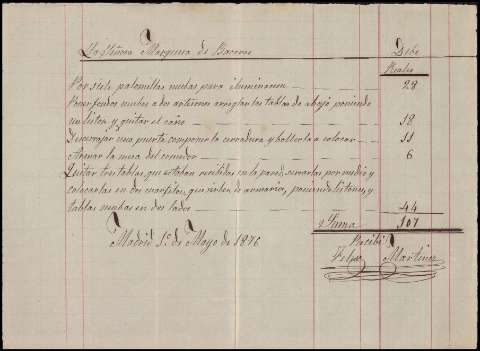 La Señora Marquesa de Bacares Debe
Reales
Por siete palomillas nuebas para iluminacion 28
Poner fondos nuebos a dos arriglar las tablas de abajo poniendo
y quitar el caño 18
Descerrajar una puerta componer la cerradura y bolberla a colocar 11
Armar la mesa del comedor 6
Quitar tres tablas, que estaban recibidas en la pared, serrarlas por medio y
colocarlas en dos cuartitos, que sirben de armario, poniendo listones, y
tablas nuebas en dos lados 44
Suma 107
Madrid 1º de Mayo de 1876
Recibi
Felipe Martinez